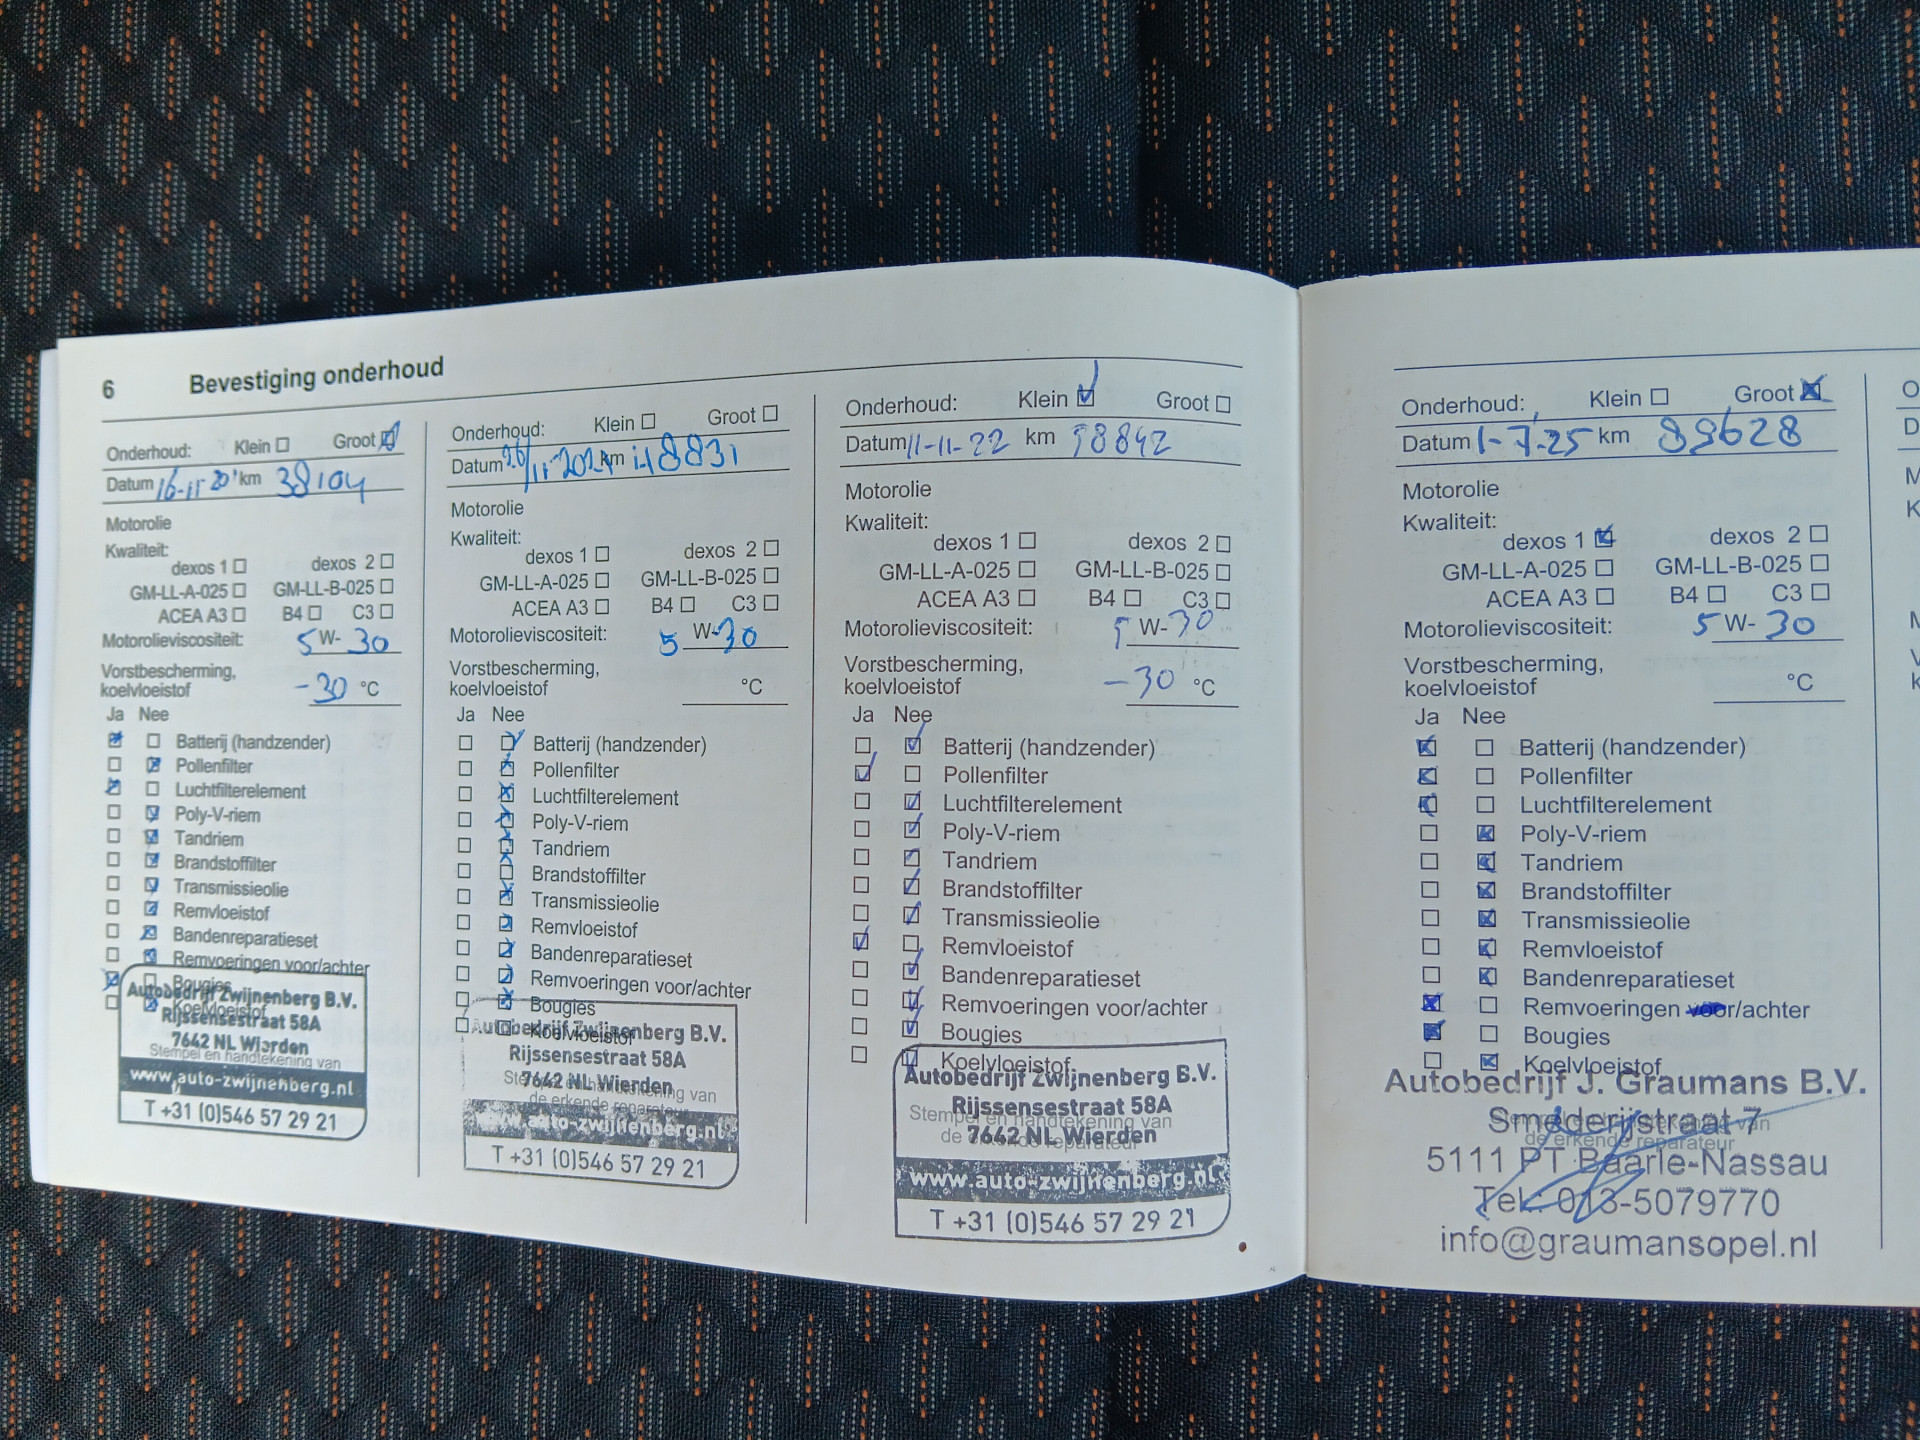 6 Bevestiging onderhoud
Onderhoud: Klein Groot
Datum 16-11-20' km 38104
Motorolie
Kwaliteit:
dexos 1 dexos 2
GM-LL-A-025 GM-LL-B-025
ACEA A3 B4 C3
Motorolieviscositeit: 5 W- 30
Vorstbescherming,
koelvloeistof -30 °C
Ja Nee
Batterij (handzender)
Pollenfilter
Luchtfilterelement
Poly-V-riem
Tandriem
Brandstoffilter
Transmissieolie
Remvloeistof
Bandenreparatieset
Remvoeringen voor/achter
Bougies
Koelvloeistof
Autobedrijf Zwijnenberg B.V.
Rijssensestraat 58A
7642 NL Wierden
Stempel en handtekening van
www.auto-zwijnenberg.nl
T +31 (0)546 57 29 21
Onderhoud: Klein Groot
Datum 26/11-2021 km 48831
Motorolie
Kwaliteit:
dexos 1 dexos 2
GM-LL-A-025 GM-LL-B-025
ACEA A3 B4 C3
Motorolieviscositeit: 5 W-30
Vorstbescherming,
koelvloeistof °C
Ja Nee
Batterij (handzender)
Pollenfilter
Luchtfilterelement
Poly-V-riem
Tandriem
Brandstoffilter
Transmissieolie
Remvloeistof
Bandenreparatieset
Remvoeringen voor/achter
Bougies
Koelvloeistof
Autobedrijf Zwijnenberg B.V.
Rijssensestraat 58A
7642 NL Wierden
Stempel en handtekening van
de erkende reparateur
www.auto-zwijnenberg.nl
T +31 (0)546 57 29 21
Onderhoud: Klein Groot
Datum 11-11-22 km 58842
Motorolie
Kwaliteit:
dexos 1 dexos 2
GM-LL-A-025 GM-LL-B-025
ACEA A3 B4 C3
Motorolieviscositeit: 5 W-30
Vorstbescherming,
koelvloeistof -30 °C
Ja Nee
Batterij (handzender)
Pollenfilter
Luchtfilterelement
Poly-V-riem
Tandriem
Brandstoffilter
Transmissieolie
Remvloeistof
Bandenreparatieset
Remvoeringen voor/achter
Bougies
Koelvloeistof
Autobedrijf Zwijnenberg B.V.
Rijssensestraat 58A
Stempel en handtekening van
7642 NL Wierden
de erkende reparateur
www.auto-zwijnenberg.nl
T +31 (0)546 57 29 21
Onderhoud: Klein Groot
Datum 1-7-25 km 89628
Motorolie
Kwaliteit:
dexos 1 dexos 2
GM-LL-A-025 GM-LL-B-025
ACEA A3 B4 C3
Motorolieviscositeit: 5 W- 30
Vorstbescherming,
koelvloeistof °C
Ja Nee
Batterij (handzender)
Pollenfilter
Luchtfilterelement
Poly-V-riem
Tandriem
Brandstoffilter
Transmissieolie
Remvloeistof
Bandenreparatieset
Remvoeringen voor/achter
Bougies
Koelvloeistof
Autobedrijf J. Graumans B.V.
Smederijstraat 7
Stempel en handtekening van
de erkende reparateur
5111 PT Baarle-Nassau
Tel: 013-5079770
info@graumansopel.nl